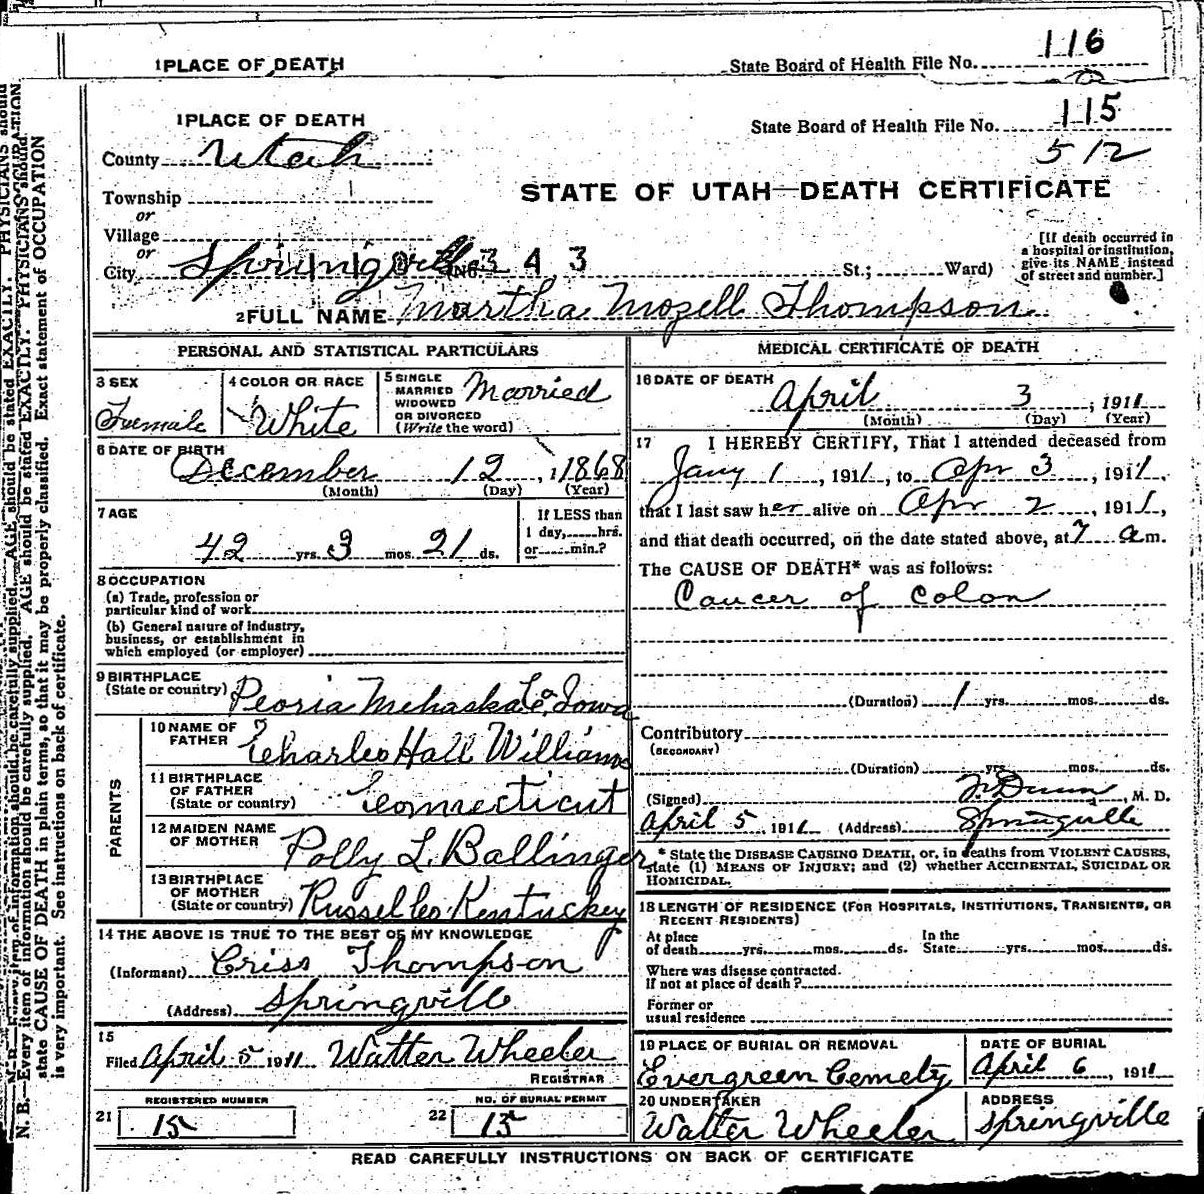 1 PLACE OF DEATH
State Board of Health File No. 116
1 PLACE OF DEATH
State Board of Health File No. 115
512
County Utah
STATE OF UTAH—DEATH CERTIFICATE
Township
or
Village
or
City Springville 343 St.; Ward)
[If death occurred in
a hospital or institution,
give its NAME instead
of street and number.]
2 FULL NAME Martha Mozell Thompson
PERSONAL AND STATISTICAL PARTICULARS
3 SEX
Female
4 COLOR OR RACE
White
5 SINGLE
MARRIED
WIDOWED
OR DIVORCED
(Write the word)
Married
6 DATE OF BIRTH
December 12, 1868
(Month) (Day) (Year)
7 AGE
42 yrs. 3 mos. 21 ds.
If LESS than
1 day, hrs.
or min.?
8 OCCUPATION
(a) Trade, profession or
particular kind of work
(b) General nature of industry,
business, or establishment in
which employed (or employer)
9 BIRTHPLACE
(State or country) Peoria Mehaska Co. Iowa
PARENTS
10 NAME OF
FATHER Charles Hall Williams
11 BIRTHPLACE
OF FATHER
(State or country) Connecticut
12 MAIDEN NAME
OF MOTHER Polly L. Ballinger
13 BIRTHPLACE
OF MOTHER
(State or country) Russel Co. Kentuckey
14 THE ABOVE IS TRUE TO THE BEST OF MY KNOWLEDGE
(Informant) Criss Thompson
(Address) Springville
15
Filed April 5 1911 Walter Wheeler
REGISTRAR
21 REGISTERED NUMBER
15
22 NO. OF BURIAL PERMIT
15
MEDICAL CERTIFICATE OF DEATH
16 DATE OF DEATH
April 3, 1911
(Month) (Day) (Year)
17 I HEREBY CERTIFY, That I attended deceased from
Jany 1, 1911, to Apr 3, 1911,
that I last saw her alive on Apr 2, 1911,
and that death occurred, on the date stated above, at 7 a m.
The CAUSE OF DEATH* was as follows:
Cancer of colon
(Duration) 1 yrs. mos. ds.
Contributory
(SECONDARY)
(Duration) yrs. mos. ds.
(Signed) Dunn, M. D.
April 5, 1911 (Address) Springville
* State the DISEASE CAUSING DEATH, or, in deaths from VIOLENT CAUSES,
state (1) MEANS OF INJURY; and (2) whether ACCIDENTAL, SUICIDAL OR
HOMICIDAL.
18 LENGTH OF RESIDENCE (FOR HOSPITALS, INSTITUTIONS, TRANSIENTS, OR
RECENT RESIDENTS)
At place
of death yrs. mos. ds. In the
State yrs. mos. ds.
Where was disease contracted.
If not at place of death?
Former or
usual residence
19 PLACE OF BURIAL OR REMOVAL
Evergreen Cemety
DATE OF BURIAL
April 6, 1911
20 UNDERTAKER
Walter Wheeler
ADDRESS
Springville
READ CAREFULLY INSTRUCTIONS ON BACK OF CERTIFICATE
N. B.—Every item of information should be carefully supplied. AGE should be stated EXACTLY. PHYSICIANS should
state CAUSE OF DEATH in plain terms, so that it may be properly classified. Exact statement of OCCUPATION
is very important. See instructions on back of certificate.